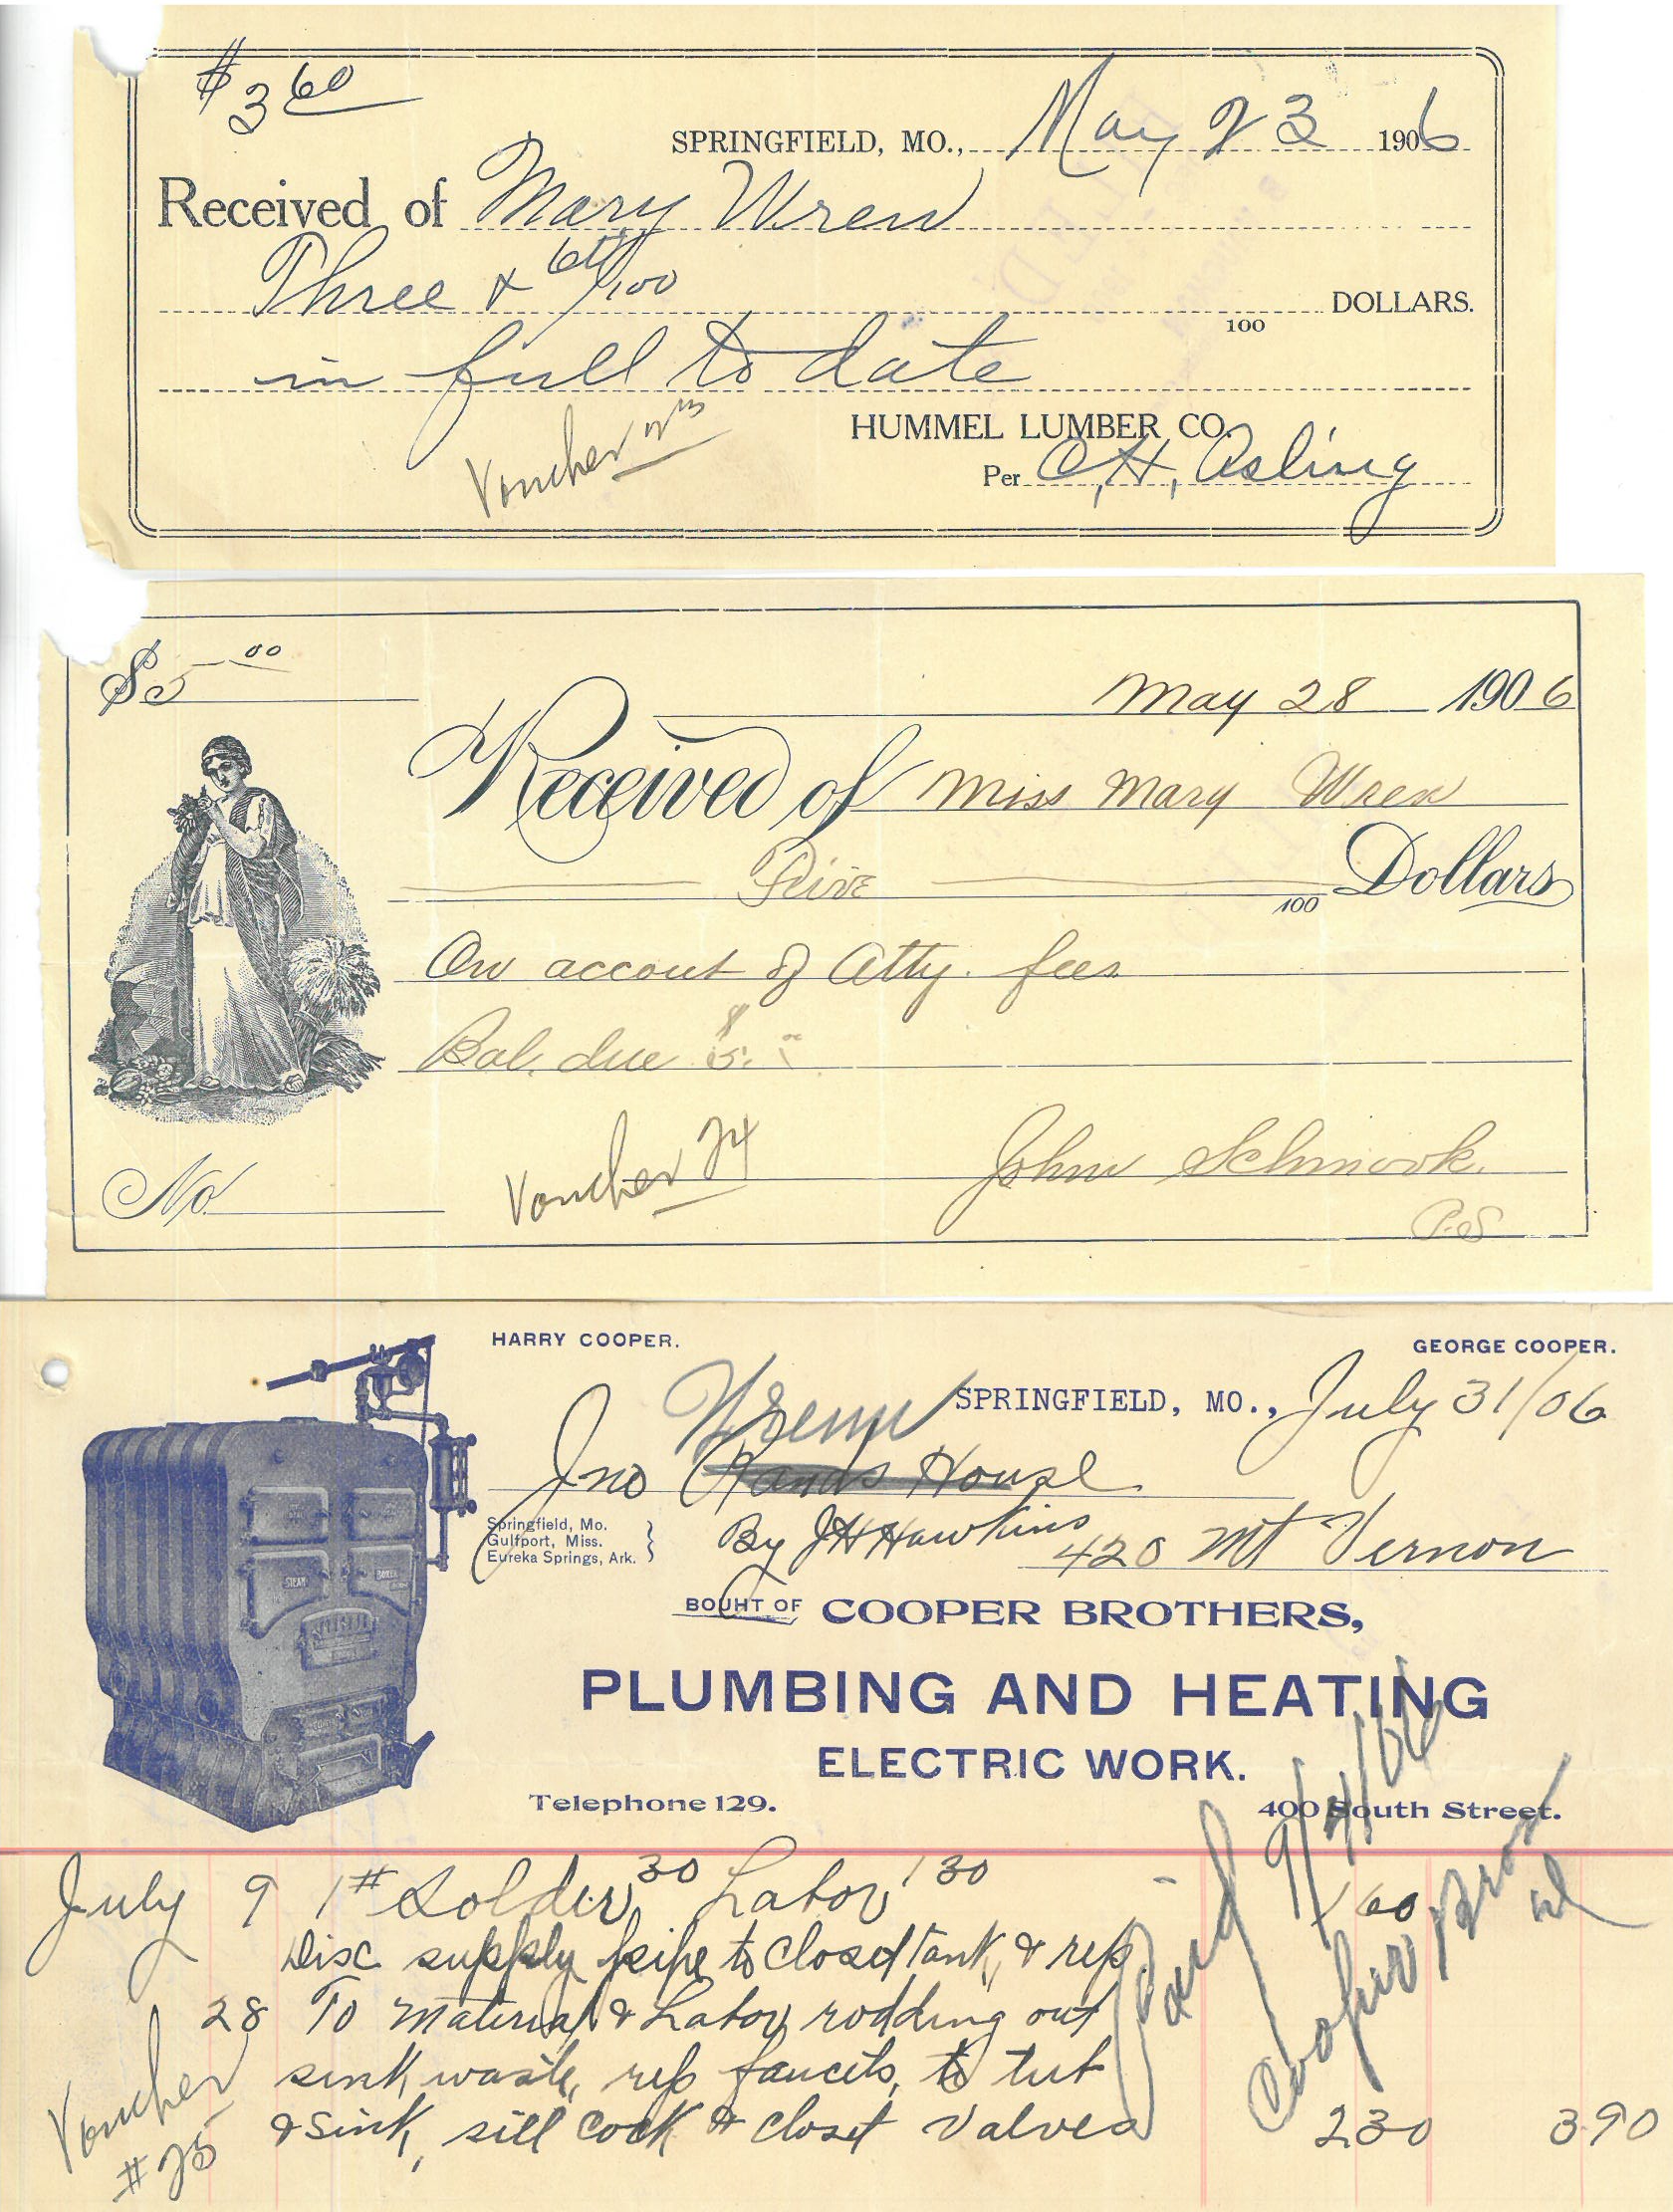 $3 60
SPRINGFIELD, MO., May 23 1906
Received of Mary Wren
Three & 60/100
100 DOLLARS.
in full to date
HUMMEL LUMBER CO.
Voucher 23
Per O, H, Asling
$5 00
May 28 1906
Received of Miss Mary Wren
Five
100 Dollars
On accout of Atty. fees
Bal. due $5.
Voucher 24
John Schmook
No.
P.S
HARRY COOPER.
GEORGE COOPER.
SPRINGFIELD, MO., July 31/06
Wrenn
Jno Rands House
Springfield, Mo.
Gulfport, Miss.
Eureka Springs, Ark.
By JH Hawkins 420 Mt Vernon
BOUHT OF COOPER BROTHERS,
PLUMBING AND HEATING
ELECTRIC WORK.
Telephone 129.
400 South Street.
July 9 1# Solder 30 Labor 130
160
Disc supply pipe to Closet Tank, & rep
28 To Material & Labor rodding out
sink waste, rep faucets, to tub
& Sink, sill Cock & Closet Valves 230 390
Paid 9/4/06
Cooper Bros
Voucher
#25